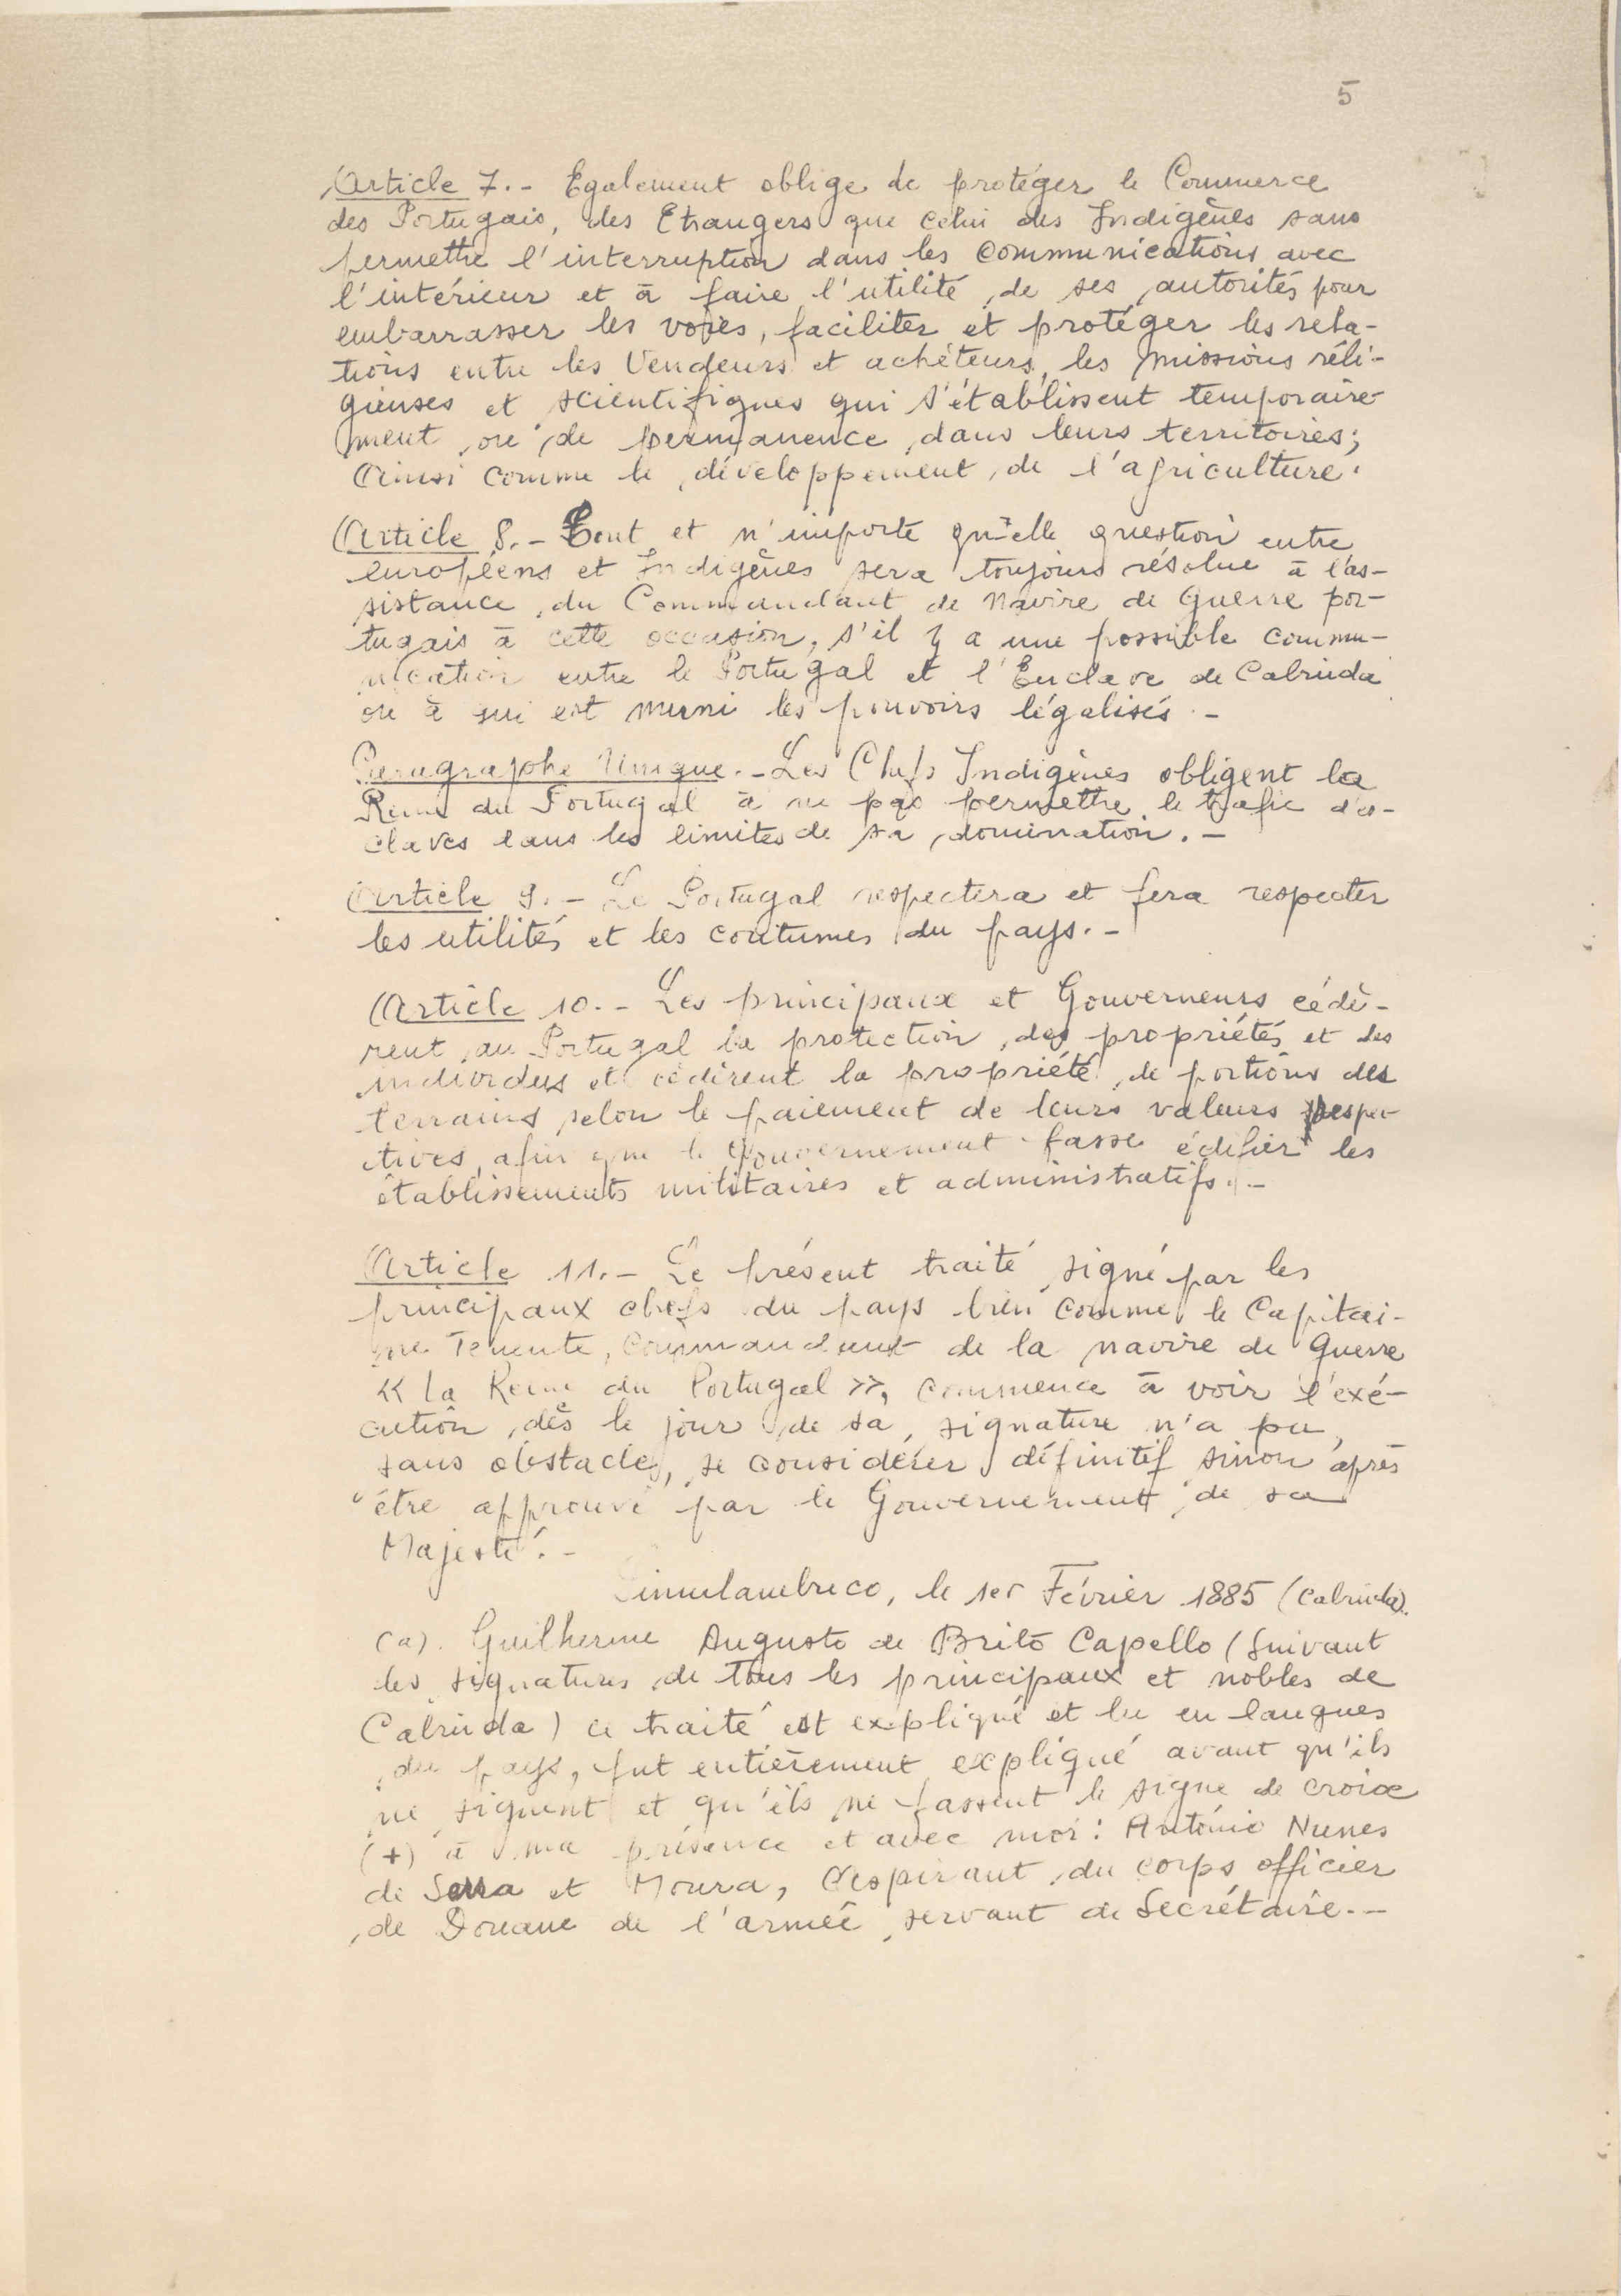 5
Article 7.- Egalement oblige de protéger le Commerce
des Portugais, des Etrangers que celui des Indigènes sans
permettre l'interruption dans les communications avec
l'intérieur et à faire l'utilité de ses autorités pour
embarrasser les voies, faciliter et protéger les rela-
tions entre les Vendeurs et achéteurs, les missions réli-
gieuses et scientifiques qui s'établissent temporaire-
ment ou de permanence dans leurs territoires;
Ainsi comme le développement de l'agriculture.
Article 8.- Tout et n'importe qu'elle question entre
européens et Indigènes sera toujours résolue à l'as-
sistance du Commandant de Navire de Guerre por-
tugais à cette occasion, s'il y a une possible commu-
nication entre le Portugal et l'Enclave de Cabinda
ou à qui est muni les pouvoirs légalisés.-
Paragraphe Unique.- Les Chefs Indigènes obligent la
Reine du Portugal à ne pas permettre le trafic d'es-
claves dans les limites de sa domination.-
Article 9.- Le Portugal respectera et fera respecter
les utilités et les coutumes du pays.-
Article 10.- Les principaux et Gouverneurs cédè-
rent au Portugal la protection des propriétés et des
individus et cédèrent la propriété de portions des
terrains selon le paiement de leurs valeurs respec-
tives, afin que le Gouvernement fasse édifier les
établissements militaires et administratifs.-
Article 11.- Le présent traité signé par les
principaux chefs du pays bien comme le Capitai-
ne Tenente, Commandant de la navire de Guerre
« la Reine du Portugal », commence à voir l'exé-
cution dès le jour de sa signature n'a pu,
sans obstacles, se considérer définitif sinon après
être approuvé par le Gouvernement de sa
Majesté.-
Simulambuco, le 1er Février 1885 (Cabinda).
(a). Guilherme Augusto de Brito Capello (Suivant
les signatures de tous les principaux et nobles de
Cabinda) ce traité est expliqué et lu en langues
du pays, fut entièrement expliqué avant qu'ils
ne signent et qu'ils ne fassent le signe de croix
(+) à ma présence et avec moi: António Nunes
de Serra et Moura, Aspirant du corps officier
de Douane de l'armée servant de Secrétaire.-